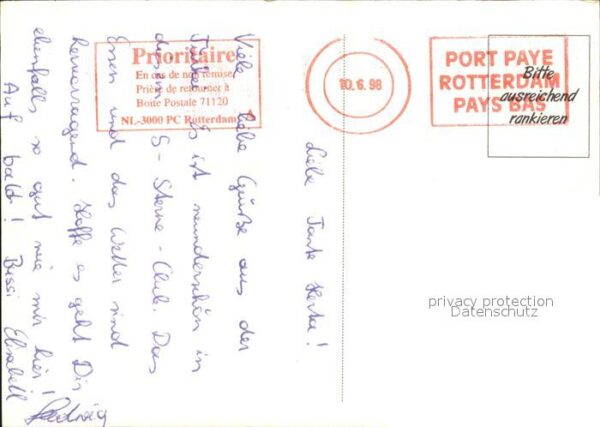 Liebe Tante Herta!
Viele liebe Grüße aus der
Türkei. Es ist wunderschön in
diesem 5-Sterne-Club. Das
Essen und das Wetter sind
hervorragend. Hoffe es geht Dir
ebenfalls so gut wie mir hier!
Auf bald! Bussi Elisabeth
Hedwig
Prioritaire
En cas de non remise
Prière de retourner à
Boite Postale 71120
NL-3000 PC Rotterdam
10.6.98
PORT PAYE
ROTTERDAM
PAYS BAS
Bitte
ausreichend
rankieren
privacy protection
Datenschutz